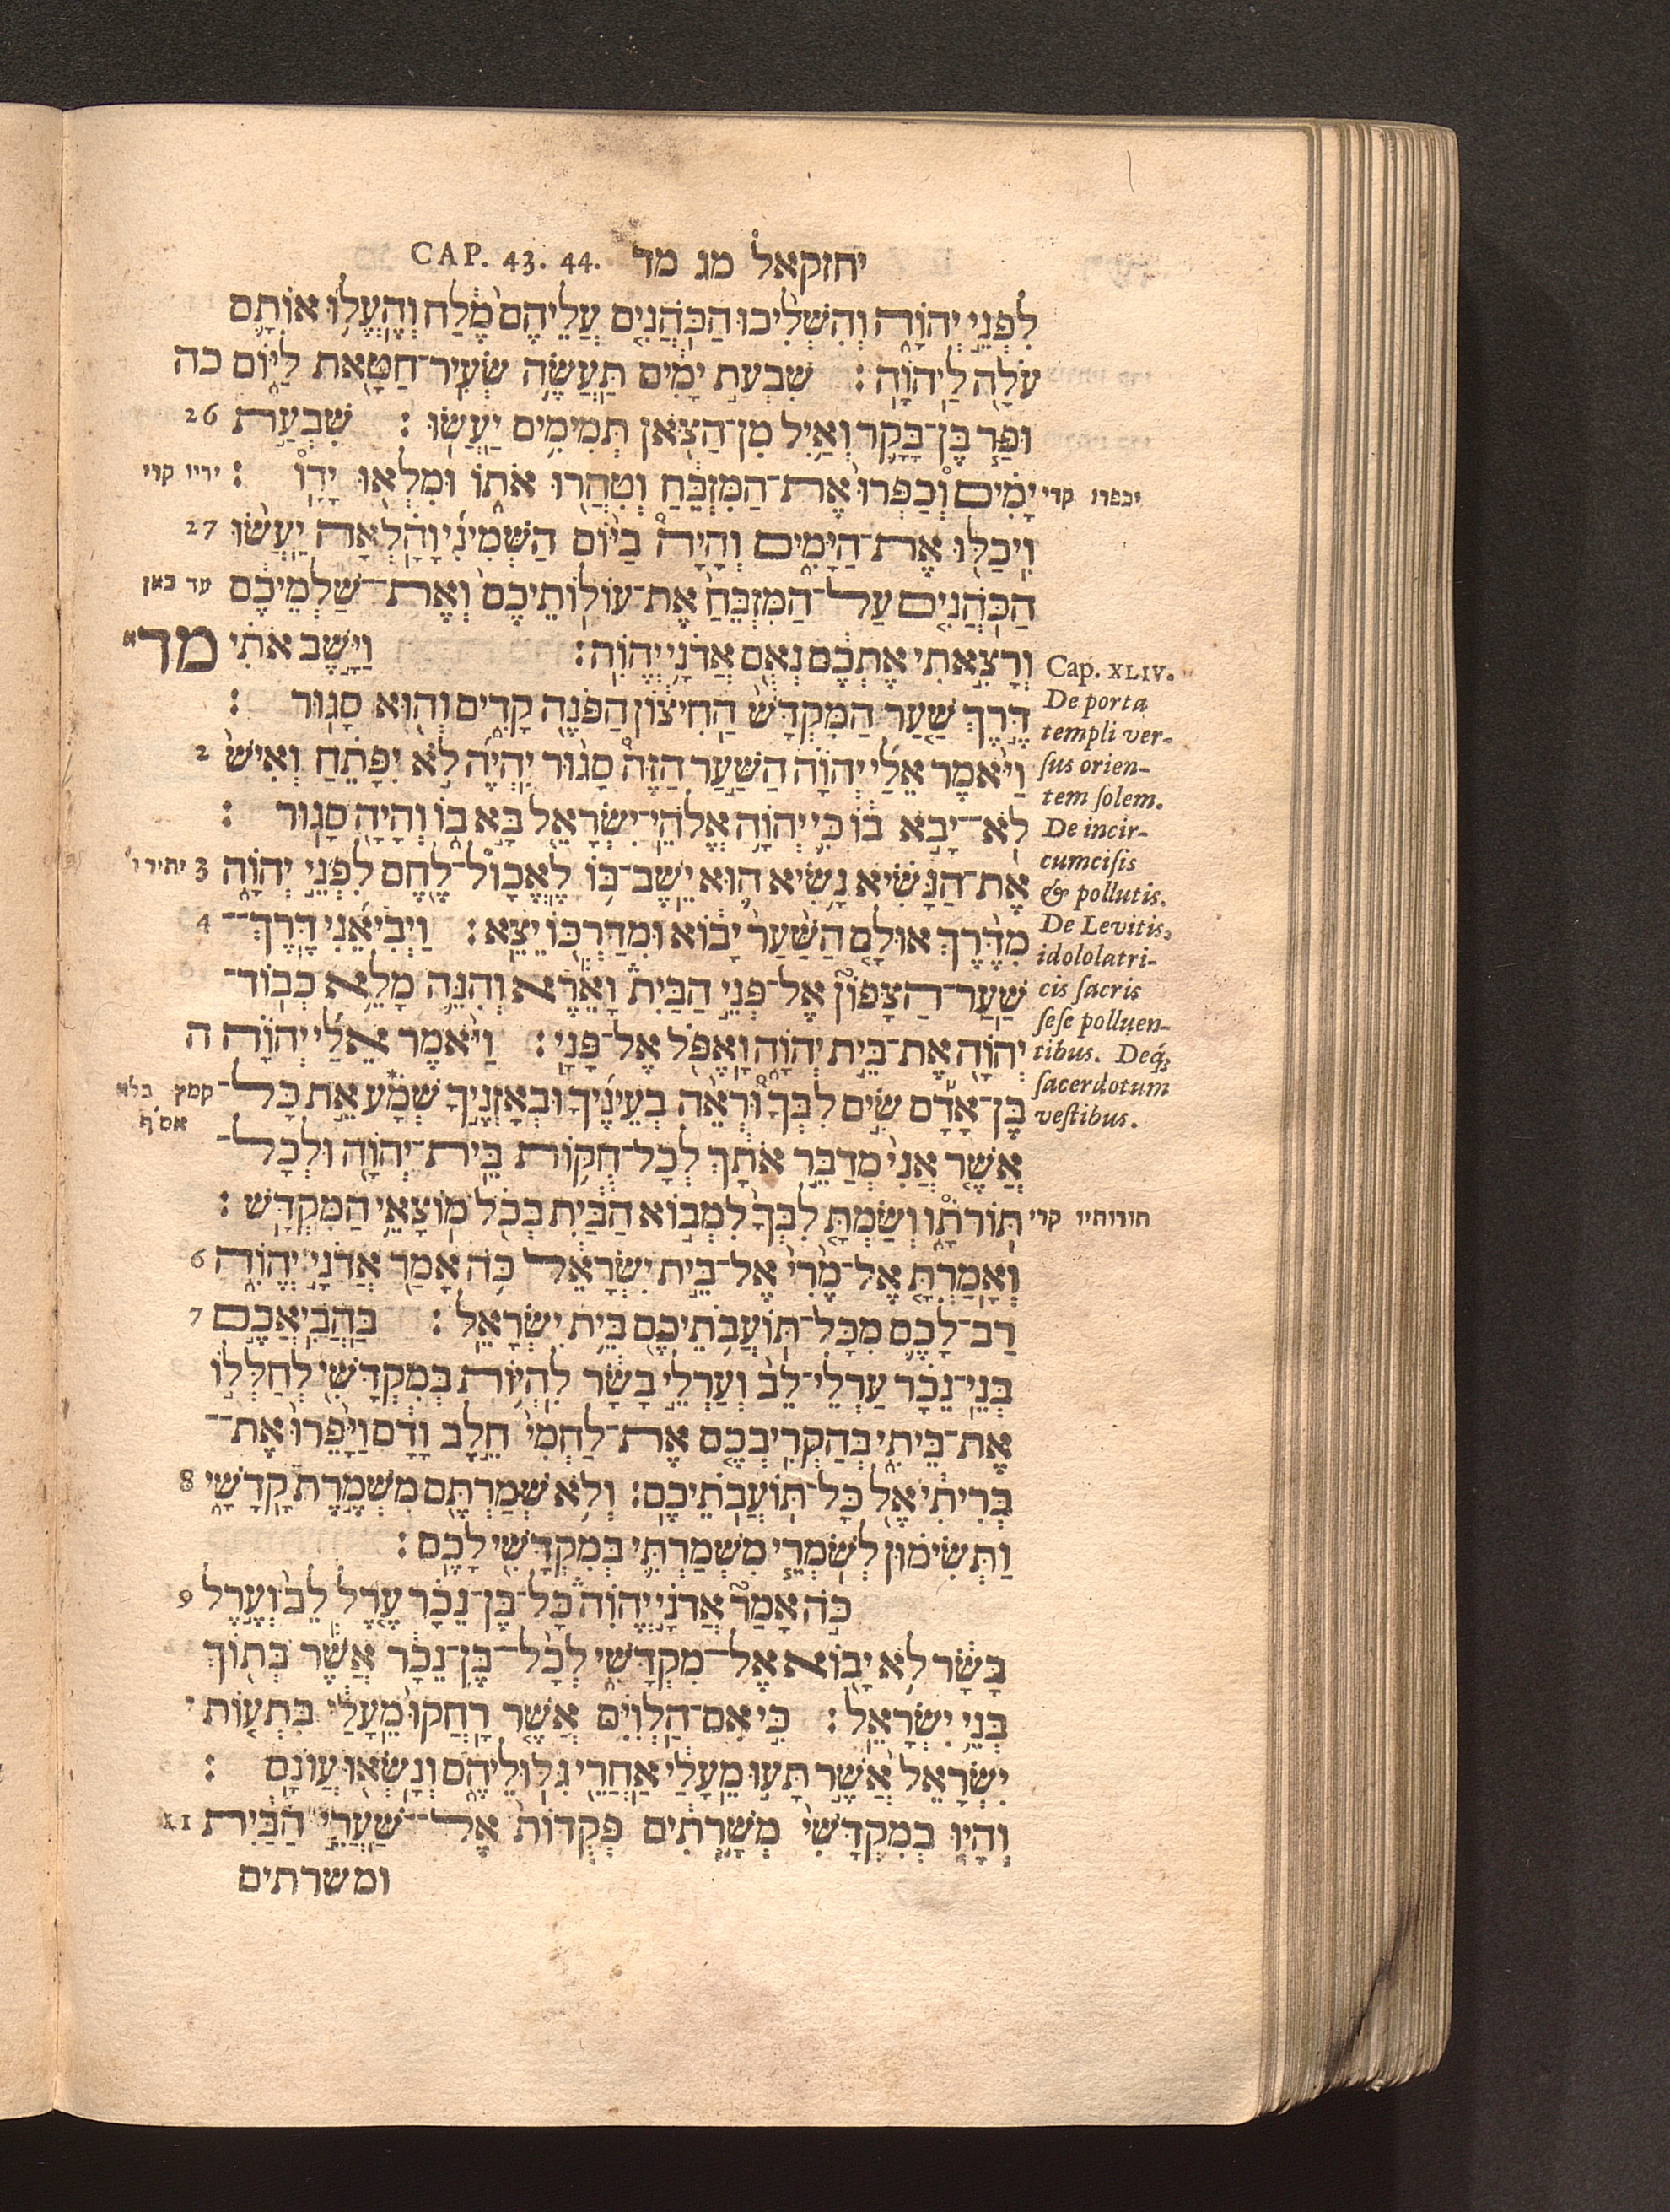 יחזקאל מג מד CAP. 43. 44.
לִפְנֵי יְהוָה וְהִשְׁלִיכוּ הַכֹּהֲנִים עֲלֵיהֶם מֶלַח וְהֶעֱלוּ אוֹתָם
עֹלָה לַיהוָה׃ שִׁבְעַת יָמִים תַּעֲשֶׂה שְׂעִיר־חַטָּאת לַיּוֹם כה
וּפַר בֶּן־בָּקָר וְאַיִל מִן־הַצֹּאן תְּמִימִים יַעֲשׂוּ׃ שִׁבְעַת 26
יכפרו קרי יָמִים וְכַפְּרוּ אֶת־הַמִּזְבֵּחַ וְטִהֲרוּ אֹתוֹ וּמִלְאוּ יָדָו׃ ידיו קרי
וִיכַלּוּ אֶת־הַיָּמִים וְהָיָה בַיּוֹם הַשְּׁמִינִי וָהָלְאָה יַעֲשׂוּ 27
הַכֹּהֲנִים עַל־הַמִּזְבֵּחַ אֶת־עוֹלוֹתֵיכֶם וְאֶת־שַׁלְמֵיכֶם עד כאן
וְרָצִאתִי אֶתְכֶם נְאֻם אֲדֹנָי יֱהוִֹה׃ וַיָּשֶׁב אֹתִי מד א
Cap. XLIV.
דֶּרֶךְ שַׁעַר הַמִּקְדָּשׁ הַחִיצוֹן הַפֹּנֶה קָדִים וְהוּא סָגוּר׃
De porta
templi ver-
וַיֹּאמֶר אֵלַי יְהוָה הַשַּׁעַר הַזֶּה סָגוּר יִהְיֶה לֹא יִפָּתֵחַ וְאִישׁ 2
sus orien-
tem solem.
לֹא־יָבֹא בוֹ כִּי יְהוָה אֱלֹהֵי־יִשְׂרָאֵל בָּא בוֹ וְהָיָה סָגוּר׃
De incir-
cumcisis
אֶת־הַנָּשִׂיא נָשִׂיא הוּא יֵשֶׁב־בּוֹ לֶאֱכָול־לֶחֶם לִפְנֵי יְהוָה 3 יתיר ו
& pollutis.
מִדֶּרֶךְ אוּלָם הַשַּׁעַר יָבוֹא וּמִדַּרְכּוֹ יֵצֵא׃ וַיְבִיאֵנִי דֶּרֶךְ־ 4
De Levitis,
idololatri-
שַׁעַר־הַצָּפוֹן אֶל־פְּנֵי הַבַּיִת וָאֵרֶא וְהִנֵּה מָלֵא כְבוֹד־
cis sacris
sese polluen-
יְהוָה אֶת־בֵּית יְהוָה וָאֶפֹּל אֶל־פָּנָי׃ וַיֹּאמֶר אֵלַי יְהוָה ה
tibus. Deq́;
sacerdotum
בֶּן־אָדָם שִׂים לִבְּךָ וּרְאֵה בְעֵינֶיךָ וּבְאָזְנֶיךָ שְׁמָע אֵת כָּל־ קמץ בלא
אס״ף
vestibus.
אֲשֶׁר אֲנִי מְדַבֵּר אֹתָךְ לְכָל־חֻקּוֹת בֵּית־יְהוָה וּלְכָל־
תורותיו קרי תּוֹרֹתָו וְשַׂמְתָּ לִבְּךָ לִמְבוֹא הַבַּיִת בְּכֹל מוֹצָאֵי הַמִּקְדָּשׁ׃
וְאָמַרְתָּ אֶל־מֶרִי אֶל־בֵּית יִשְׂרָאֵל כֹּה אָמַר אֲדֹנָי יֱהוִֹה 6
רַב־לָכֶם מִכָּל־תּוֹעֲבֹתֵיכֶם בֵּית יִשְׂרָאֵל׃ בַּהֲבִיאֲכֶם 7
בְּנֵי־נֵכָר עַרְלֵי־לֵב וְעַרְלֵי בָשָׂר לִהְיוֹת בְּמִקְדָּשִׁי לְחַלְּלוֹ
אֶת־בֵּיתִי בְּהַקְרִיבְכֶם אֶת־לַחְמִי חֵלֶב וָדָם וַיָּפֵרוּ אֶת־
בְּרִיתִי אֶל כָּל־תּוֹעֲבֹתֵיכֶם׃ וְלֹא שְׁמַרְתֶּם מִשְׁמֶרֶת קָדָשָׁי 8
וַתְּשִׂימוּן לְשֹׁמְרֵי מִשְׁמַרְתִּי בְּמִקְדָּשִׁי לָכֶם׃
כֹּה אָמַר אֲדֹנָי יֱהוִֹה כָּל־בֶּן־נֵכָר עֶרֶל לֵב וְעֶרֶל 9
בָּשָׂר לֹא יָבוֹא אֶל־מִקְדָּשִׁי לְכָל־בֶּן־נֵכָר אֲשֶׁר בְּתוֹךְ
בְּנֵי יִשְׂרָאֵל׃ כִּי אִם־הַלְוִיִּם אֲשֶׁר רָחֲקוּ מֵעָלַי בִּתְעוֹת י
יִשְׂרָאֵל אֲשֶׁר תָּעוּ מֵעָלַי אַחֲרֵי גִּלּוּלֵיהֶם וְנָשְׂאוּ עֲוֹנָם׃
וְהָיוּ בְמִקְדָּשִׁי מְשָׁרְתִים פְּקֻדּוֹת אֶל־שַׁעֲרֵי הַבַּיִת 11
ומשרתים